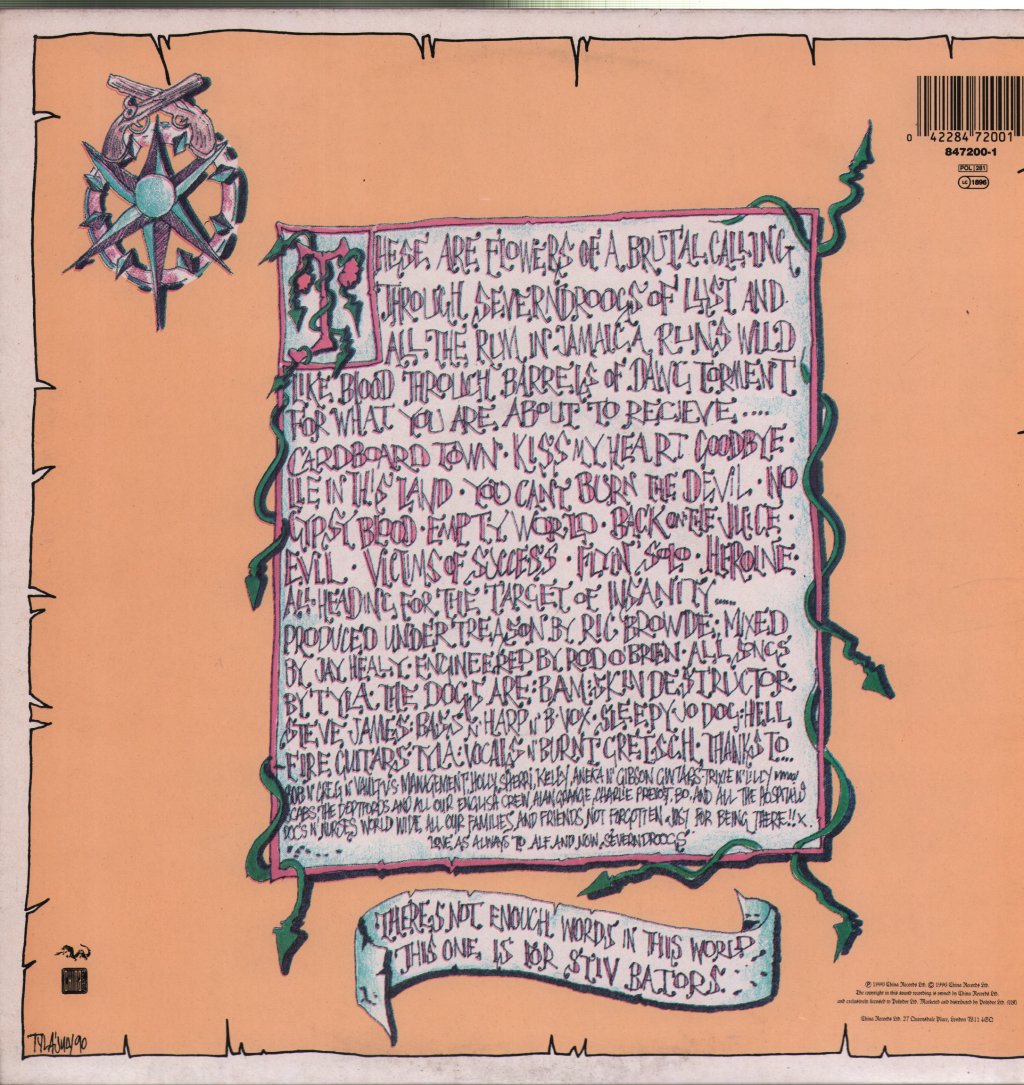 0 42284 72001
847200-1
POL 281
LC 1896
THESE ARE FLOWERS OF A BRUTAL CALLING
THROUGH SEVERNDROOGS OF LUST AND
ALL THE RUM IN JAMAICA RUNS WILD
LIKE BLOOD THROUGH BARRELS OF DAWG TORMENT
FOR WHAT YOU ARE ABOUT TO RECIEVE ....
CARDBOARD TOWN · KISS MY HEART GOODBYE ·
LIE IN THIS LAND · YOU CAN'T BURN THE DEVIL · NO
GYPSY BLOOD · EMPTY WORLD · BACK ON THE JUICE ·
EVIL · VICTIMS OF SUCCESS · FLYIN' SOLO · HEROINE ·
ALL HEADING FOR THE TARGET OF INSANITY .....
PRODUCE'D UNDER TREASON BY RIC BROWDE · MIXED
BY JAY HEALY · ENGINEERED BY ROD O'BRIEN · ALL SONGS
BY TYLA · THE DOGS ARE: BAM: SKIN DESTRUCTOR
STEVE JAMES: BASS N' HARP N' B·VOX · SLEEPY JO DOG: HELL
FIRE GUITARS TYLA: VOCALS N' BURNT GRETSCH · THANKS TO...
ROB N' GREG N' VAULT V.S. MANAGEMENT, HOLLY, SHERRI, KELBY, ANEKA N' GIBSON GUITARS · TRIXIE N' LILLY
SCABS, THE DEPTFORDS AND ALL OUR ENGLISH CREW, ALAN GRANGE, CHARLIE PREVOST, BO, AND ALL THE HOSPITALS
DOCS N' NURSES WORLD WIDE, ALL OUR FAMILIES, AND FRIENDS, NOT FORGOTTEN · JUST FOR BEING THERE!! X.
LOVE AS ALWAYS TO ALF AND NOW SEVERNDROOGS
THERE'S NOT ENOUGH WORDS IN THIS WORLD
THIS ONE IS FOR STIV BATORS...
CHINA
℗ 1990 China Records Ltd. © 1990 China Records Ltd.
The copyright in this sound recording is owned by China Records Ltd.
and exclusively licensed to Polydor Ltd. Marketed and distributed by Polydor Ltd.
China Records Ltd. 27 Queensdale Place, London W11 4SQ
TYLA /90